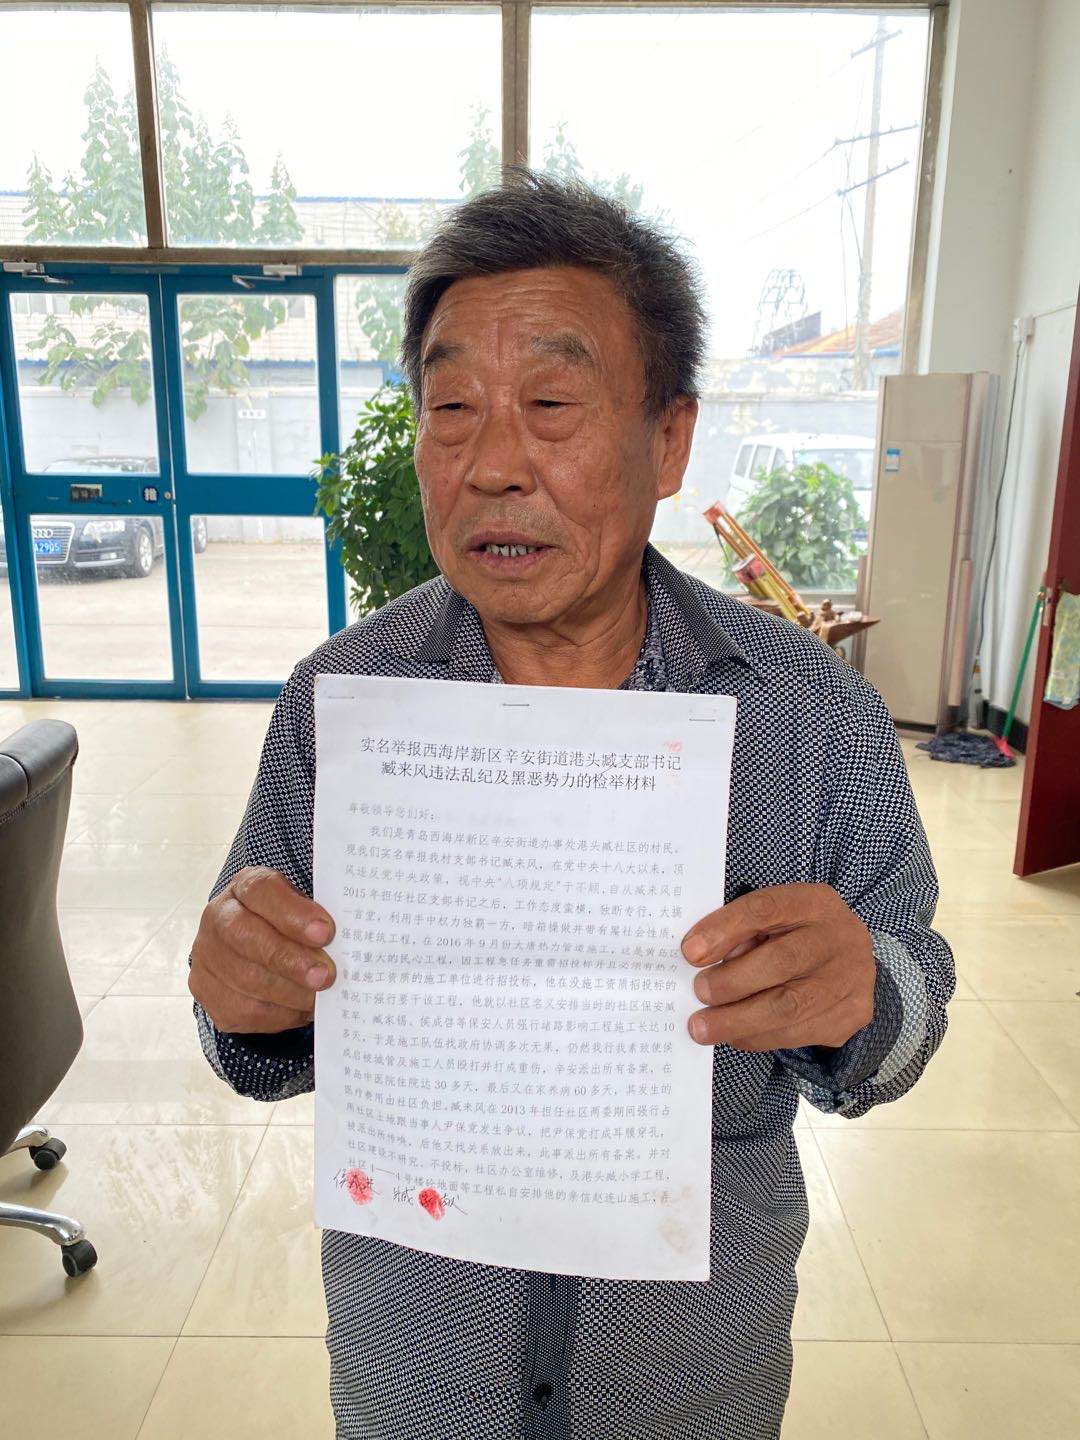 推
A29Q5
实名举报西海岸新区辛安街道港头臧支部书记
臧来风违法乱纪及黑恶势力的检举材料
尊敬领导您们好:
我们是青岛西海岸新区辛安街道办事处港头臧社区的村民,
现我们实名举报我村支部书记臧来风,在党中央十八大以来,顶
风违反党中央政策,视中央“八项规定”于不顾,自从臧来风自
2015年担任社区支部书记之后、工作态度蛮横,独断专行,大搞
一言堂,利用手中权力独霸一方,暗箱操做并带有黑社会性质,
强揽建筑工程,在2016年9月份大唐热力管道施工,这是黄岛区
一项重大的民心工程,因工程急任务重需招投标并且必须有热力
管道施工资质的施工单位进行招投标,他在没施工资质招投标的
情况下强行要干该工程,他就以社区名义安排当时的社区保安臧
家军、臧家锡、侯成啓等保安人员强行堵路影响工程施工长达10
多天,于是施工队伍找政府协调多次无果,仍然我行我素致使侯
成启被城管及施工人员殴打并打成重伤,辛安派出所有备案,在
黄岛中医院住院达30多天,最后又在家养病60多天,其发生的
医疗费用由社区负担。臧来风在2013年担任社区两委期间强行占
用社区土地跟当事人尹保党发生争议,把尹保党打成耳膜穿孔,
被派出所传唤,后他又找关系放出来,此事派出所有备案。并对
社区建设不研究,不投标,社区办公室维修,及港头臧小学工程,
社区1——4号楼砼地面等工程私自安排他的亲信赵连山施工,弄